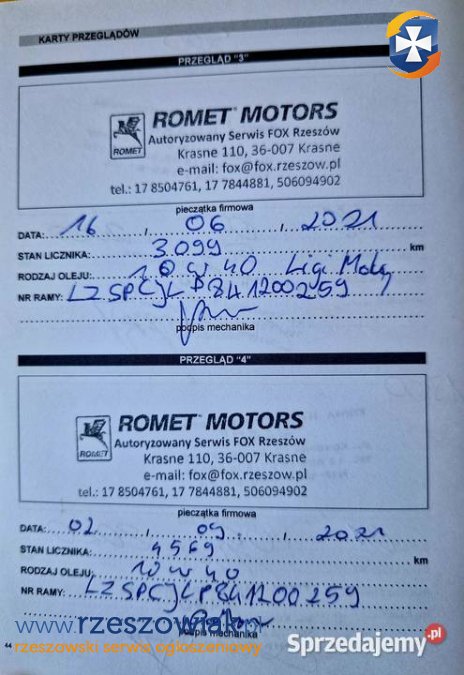 KARTY PRZEGLĄDÓW
PRZEGLĄD "3"
ROMET MOTORS
Autoryzowany Serwis FOX Rzeszów
ROMET
Krasne 110, 36-007 Krasne
e-mail: fox@fox.rzeszow.pl
tel.: 17 8504761, 17 7844881, 506094902
pieczątka firmowa
DATA: 16 , 06 , 2021
STAN LICZNIKA: 3099 km
RODZAJ OLEJU: 10 W 40 Liqi Moly
NR RAMY: LZSPCJLP841200259
podpis mechanika
PRZEGLĄD "4"
ROMET MOTORS
Autoryzowany Serwis FOX Rzeszów
ROMET
Krasne 110, 36-007 Krasne
e-mail: fox@fox.rzeszow.pl
tel.: 17 8504761, 17 7844881, 506094902
pieczątka firmowa
DATA: 02 , 09 , 2021
STAN LICZNIKA: 4569 km
RODZAJ OLEJU: 10 W 40
NR RAMY: LZSPCJLP841200259
www.rzeszowiak.pl
podpis mechanika
44 rzeszowski serwis ogłoszeniowy
Sprzedajemy.pl